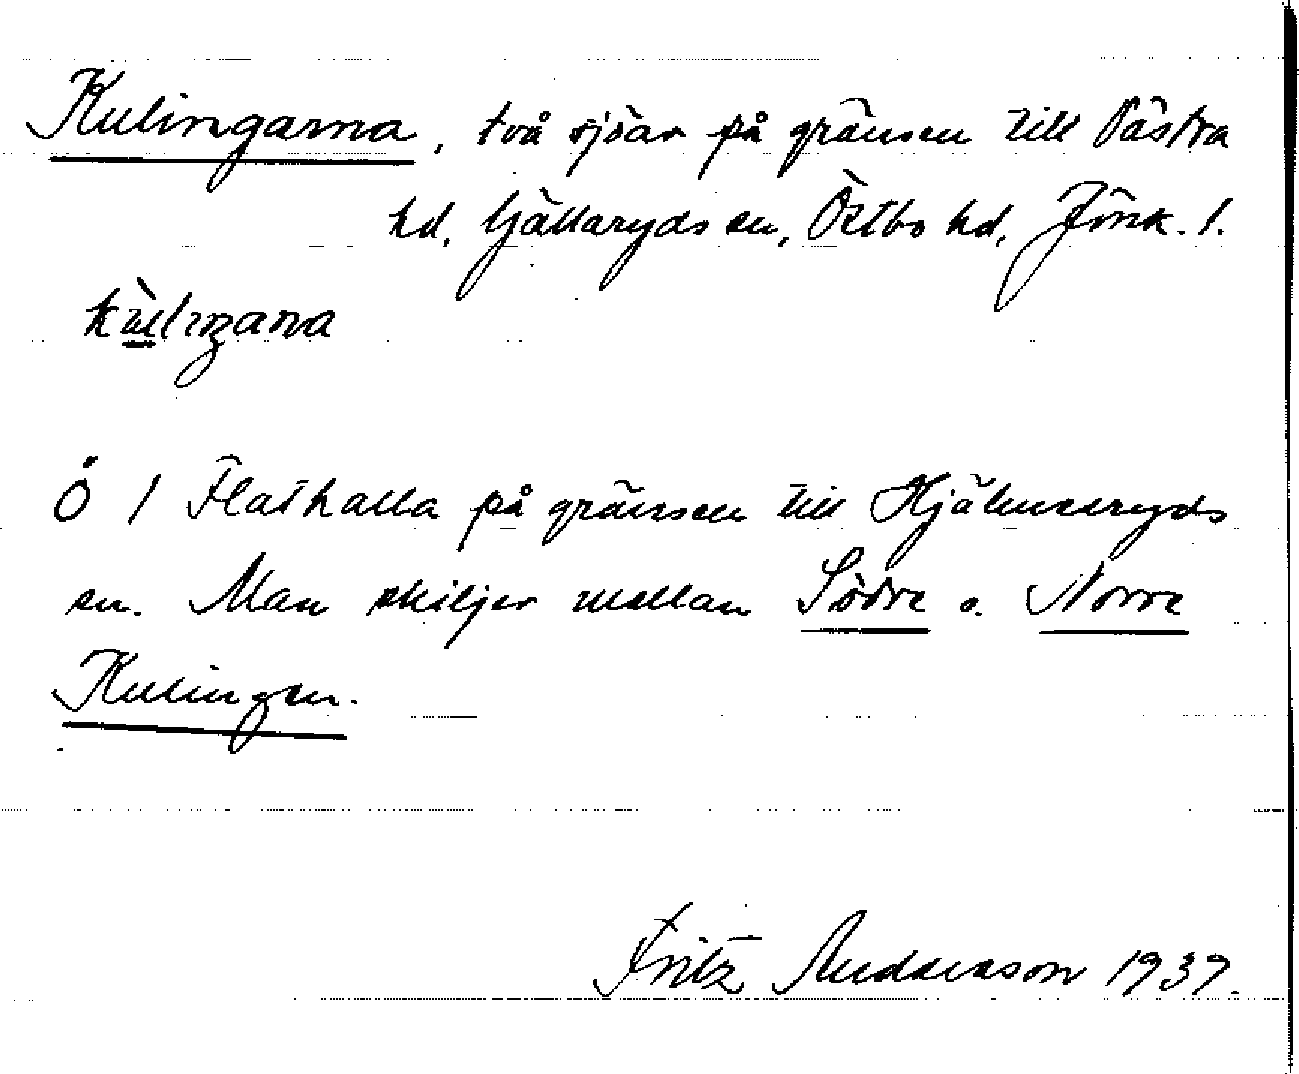 Kulingarna, två sjöar på gränsen till Västra
hd, Gällaryds sn, Östbo hd, Jönk. l.
Ö / Flathalla på gränsen till Hjälmseryds
sn. Man skiljer mellan Södre o. Norre
Kulingen.
Fritz Andersson 1937.